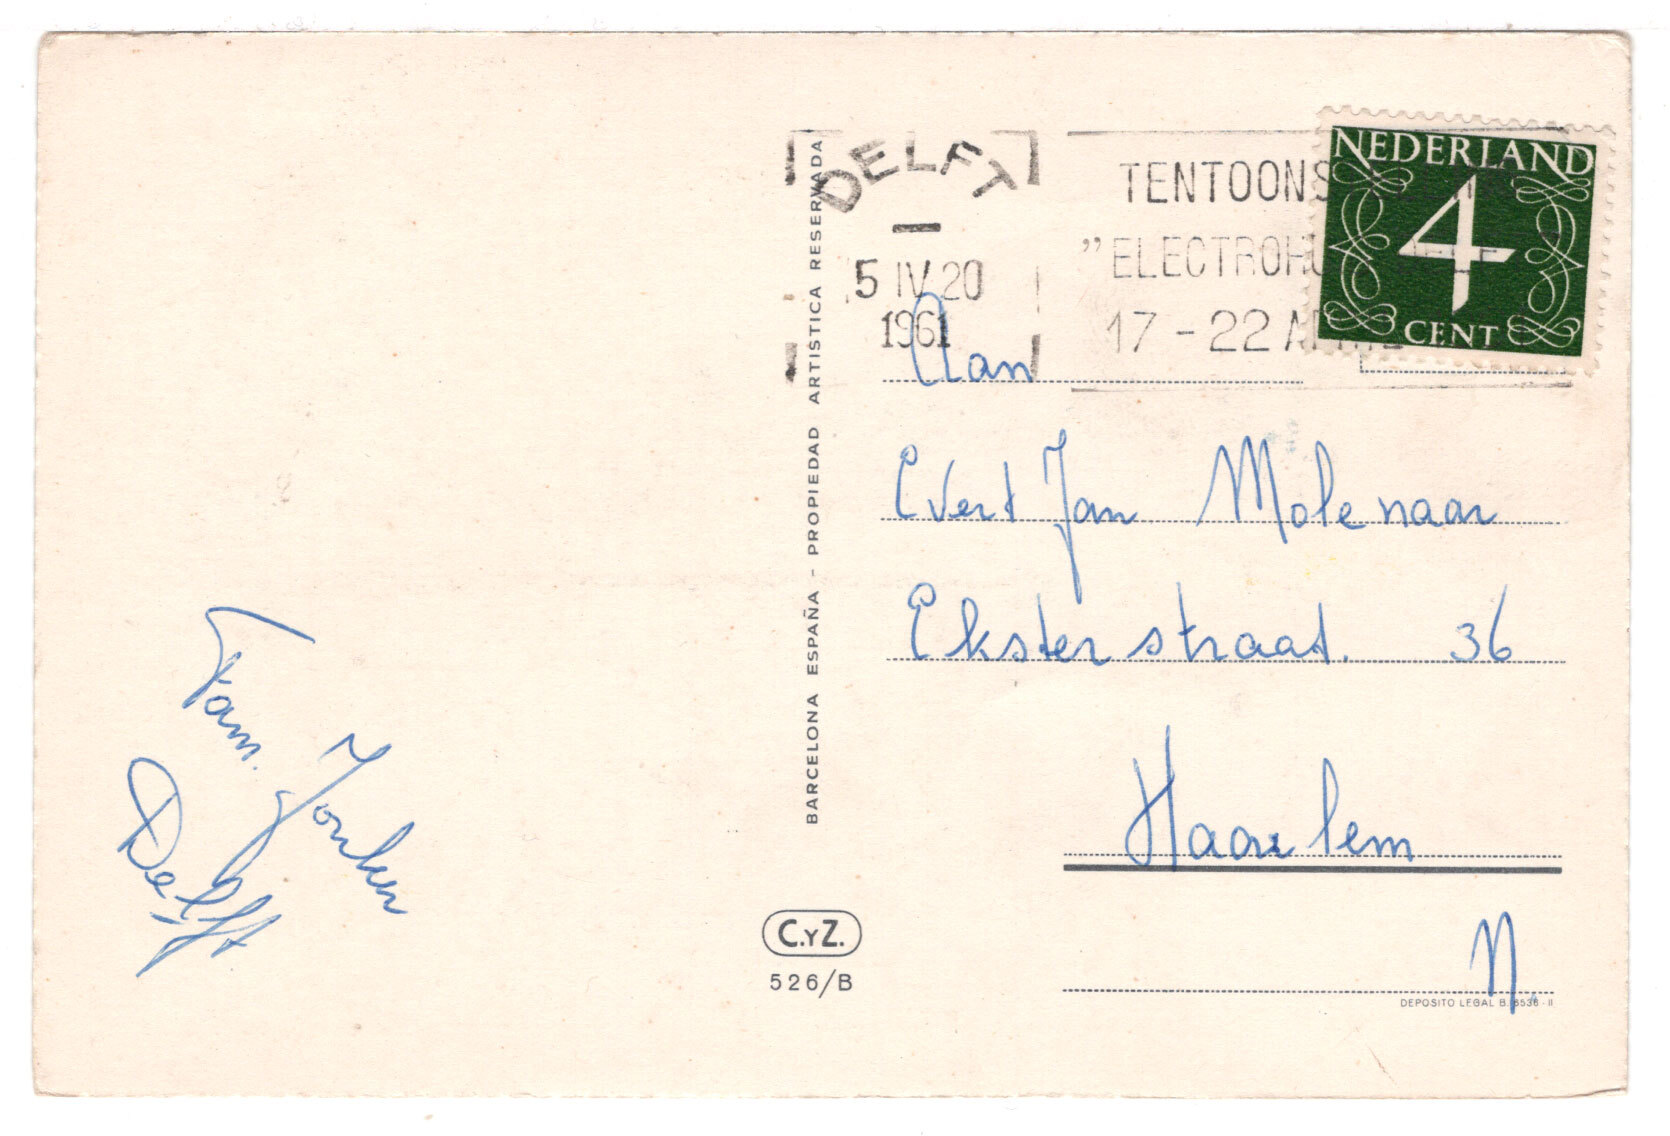 DELFT
5 IV 20
1961
TENTOONS
"ELECTROH
17-22 A
NEDERLAND
4
CENT
Aan
Evert Jan Molenaar
Eksterstraat. 36
Haarlem
N.
Fam. Jonker
Delft
BARCELONA ESPAÑA - PROPIEDAD ARTISTICA RESERVADA
C.YZ.
526/B
DEPOSITO LEGAL B. 6536-II